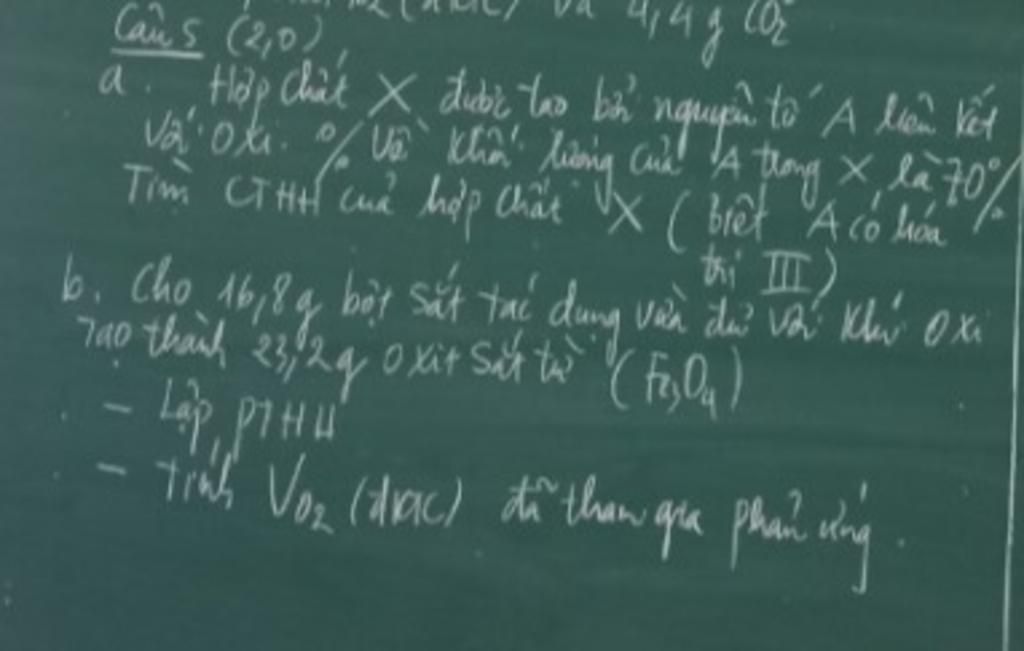 (đktc) và 4,4 g CO2
Câu 5 (2,0)
a. Hợp chất X được tạo bởi nguyên tố A liên kết
với oxi. % về khối lượng của A trong X là 70%
Tìm CTHH của hợp chất X ( biết A có hóa
trị III )
b. Cho 16,8g bột sắt tác dụng vừa đủ với khí oxi
tạo thành 23,2g oxit sắt từ (Fe3O4)
- Lập PTHH
- Tính VO2 (đktc) đã tham gia phản ứng.